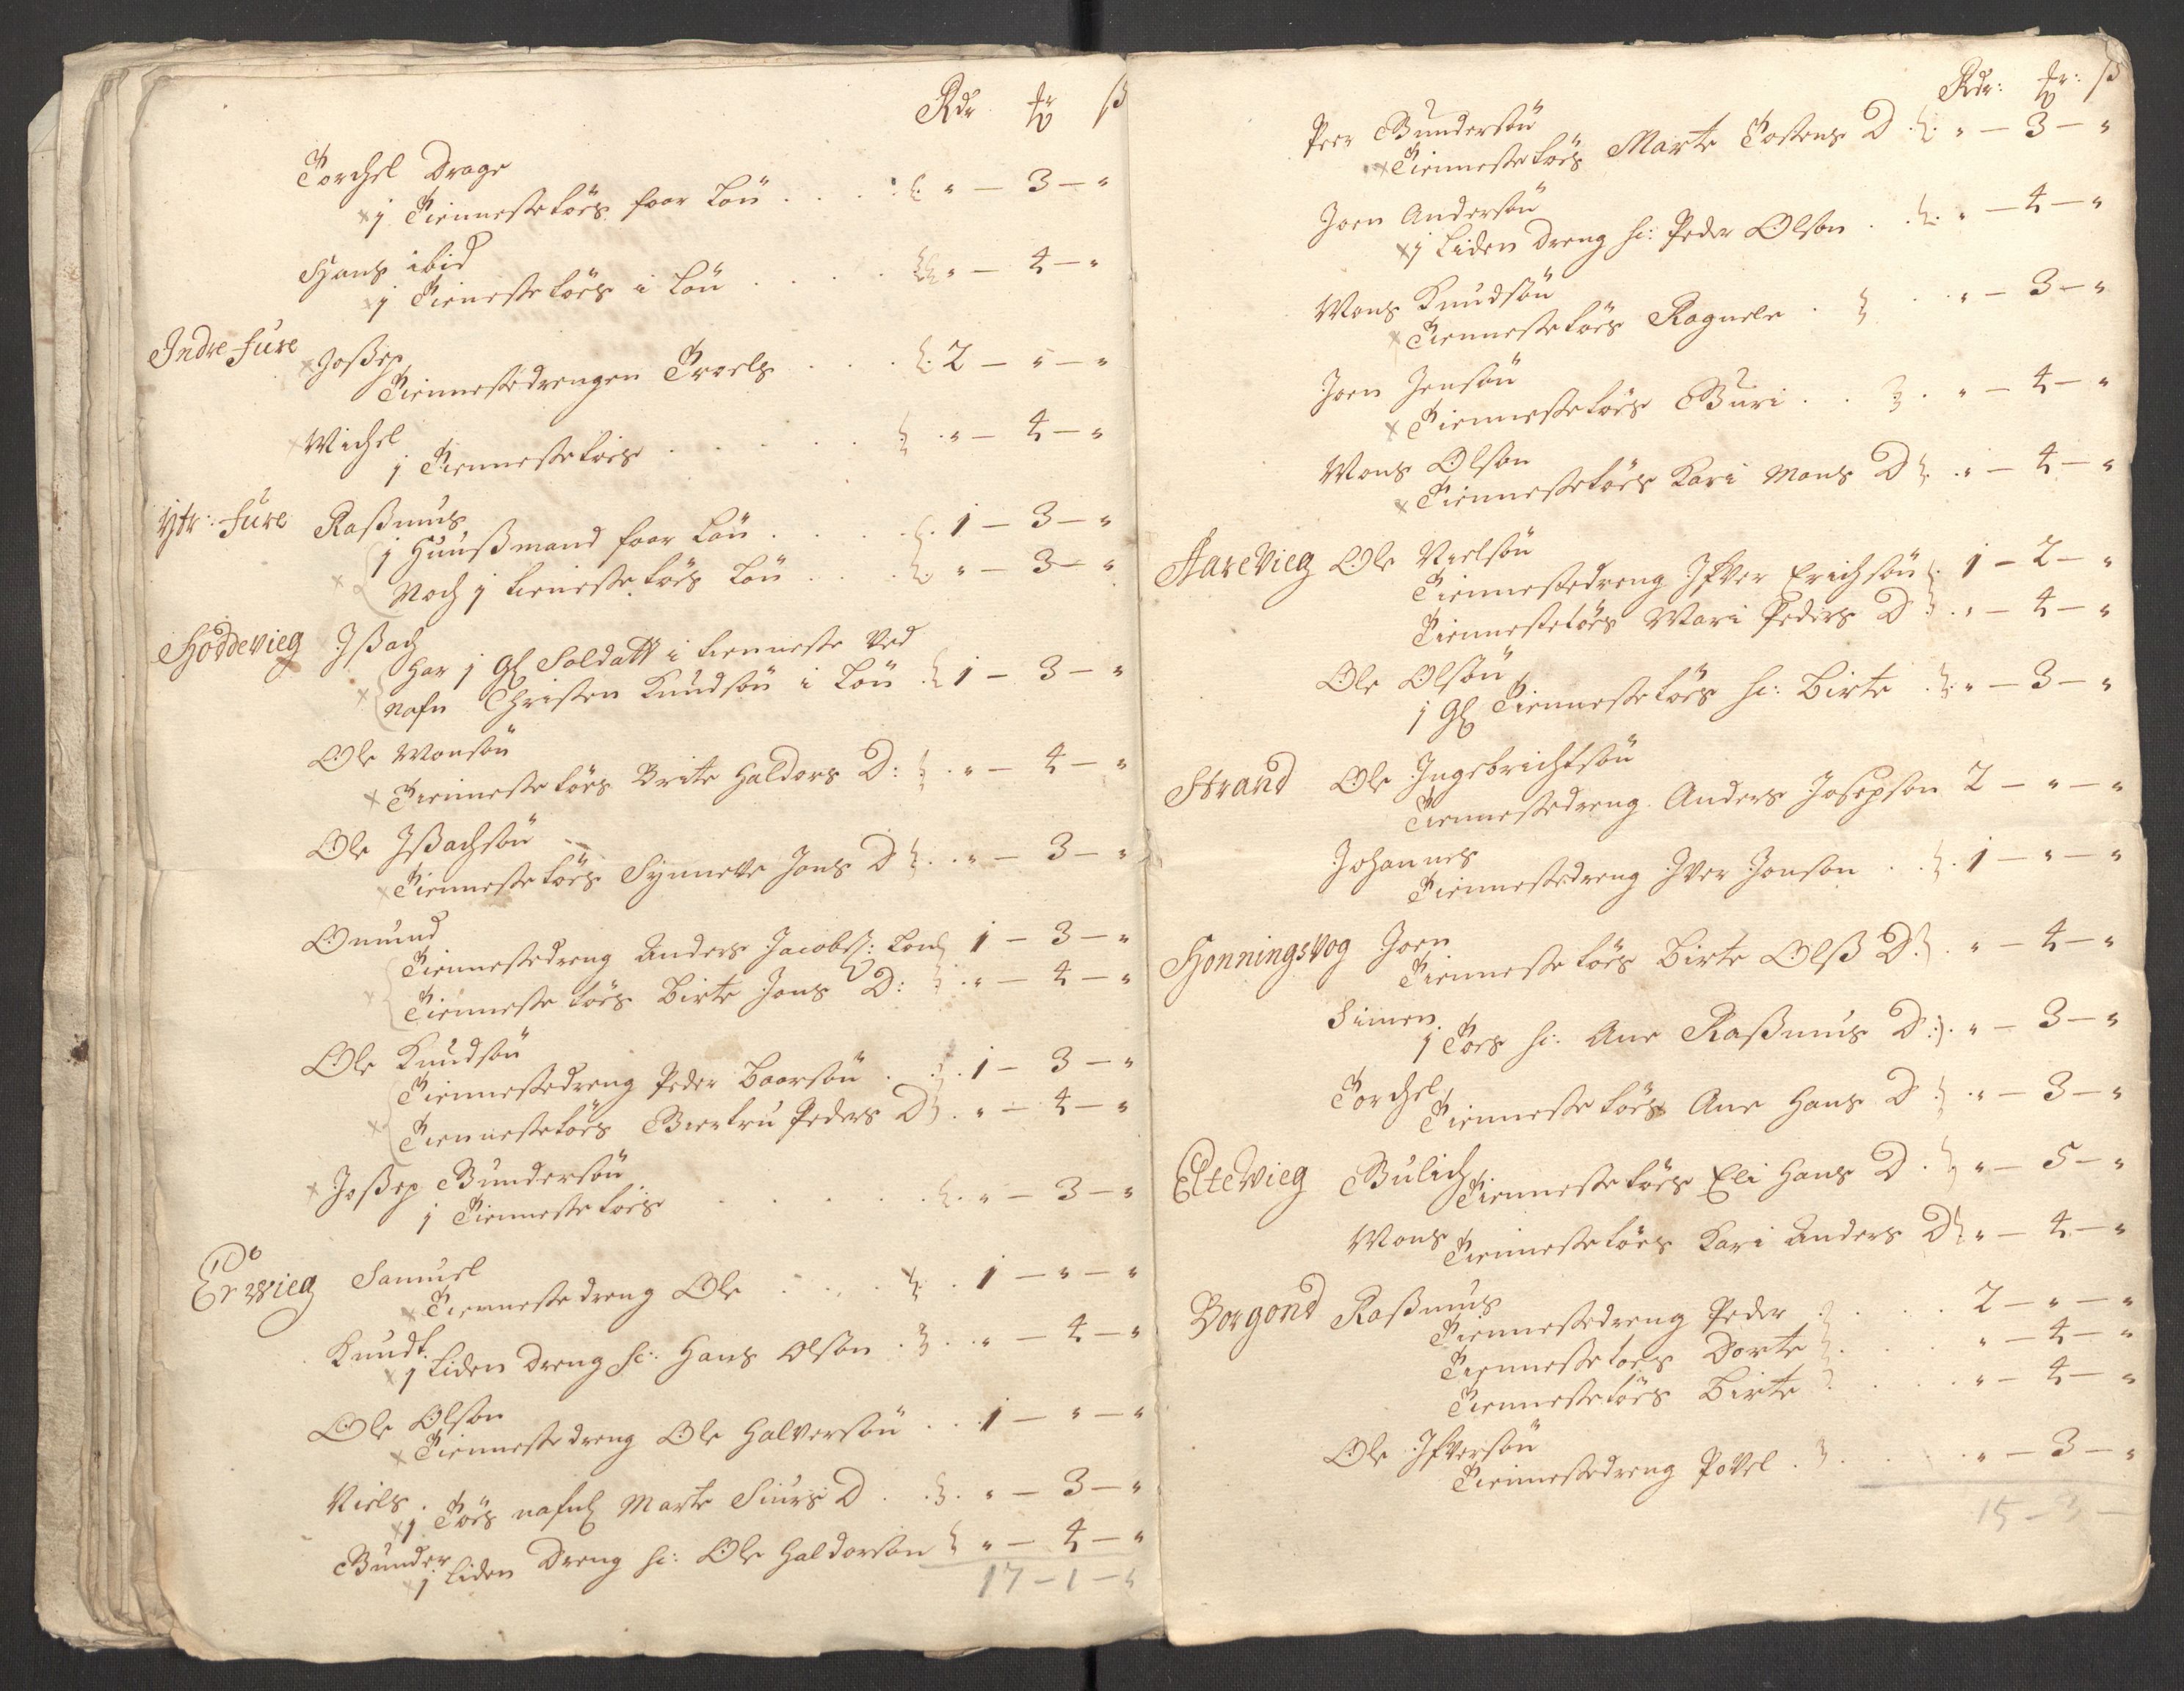 Rdr ꝟ ß
Torchel Drage
j Tienneste töes faar Lön . . . " — 3 — "
Hans ibid
j Tieneste töes i Lön . . . " — 4 — "
Indre Fure Joßep
Tiennestedrengen Troels . . . 2 — " — "
Michel
j Tienneste töes . . . " — 4 — "
Ytr: Fure Raßmus
j Huußmand faar Lön . . . 1 — 3 — "
Noch j tieneste töes Lön . . . " — 3 — "
Höddevieg Jßach
Har j gl Soldatt i tienneste ved
nafn Christen Knudsön i Lön 1 — 3 — "
Ole Monsön
Tienneste töes Brite Haldors D: " — 4 — "
Ole Jßachsön
Tienneste töes Synneve Jons D " — 3 — "
Omund
Tiennestedreng Anders Jacobs: Lön 1 — 3 — "
Tienneste töes Birte Jons D: " — 4 — "
Ole Knudsön
Tiennestedreng Peder Baarsön . 1 — 3 — "
Tienneste töes Giertru Peders D " — 4 — "
Joßep Gundersön
j Tienneste töes . . . " — 3 — "
Ervieg Samuel
Tiennestedreng Ole . . . 1 — " — "
Knudt
j liden dreng h: Hans Olson . " — 4 — "
Ole Olson
Tienneste dreng Ole Halversön . . 1 — " — "
Niels .
j Töes nafnl Marte Siurs D . . " — 3 — "
Gunder
j liden Dreng h: Ole Haldorson " — 4 — "
17 — 1 — "
Rdr: ꝟ: ß
Peer Gundersön
Tienneste töes Marte Tostens D . " — 3 — "
Joen Andersön
j liden dreng h: Peder Olson . " — 4 — "
Mons Knudsön
Tienneste töes Ragnele . " — 3 — "
Joen Jensön
Tienneste töes Guri . . " — 4 — "
Mons Olson
Tienneste töes Kari Mons D . " — 4 — "
Aarevieg Ole Nielsön
Tiennestedreng Ifver Erichsön 1 — 2 — "
Tienneste töes Mari Peders D . " — 4 — "
Ole Olsön
j gl Tienneste töes h: Birte . " — 3 — "
Strand Ole Ingebrichtsön
Tiennestedreng Anders Josepson 2 — " — "
Johannes
Tiennestedreng Iver Jonson . . 1 — " — "
Honningsvog Joen
Tienneste töes Birte Olß D . " — 4 — "
Simen
j Töes h: Ane Raßmus D . " — 3 — "
Torchel
Tienneste töes Ane Hans D . " — 3 — "
Eltevieg Gulich
Tienneste töes Eli Hans D . " — 5 — "
Mons
Tienneste töes Kari Anders D " — 4 — "
Borgond Raßmus
Tiennestedreng Peder . . . 2 — " — "
Tienneste töes Dorte . . . " — 4 — "
Tienneste töes Birte . . . " — 4 — "
Ole Ifversön
Tiennestedreng Povel . . . " — 3 — "
15 — 3 —